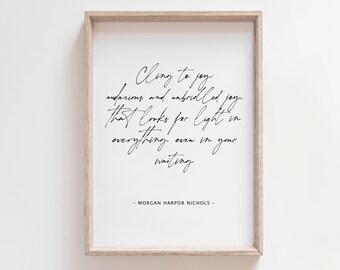 Cling to joy:
audacious and unbridled joy,
that looks for light in
everything, even in your
waiting
- MORGAN HARPOR NICHOLS -